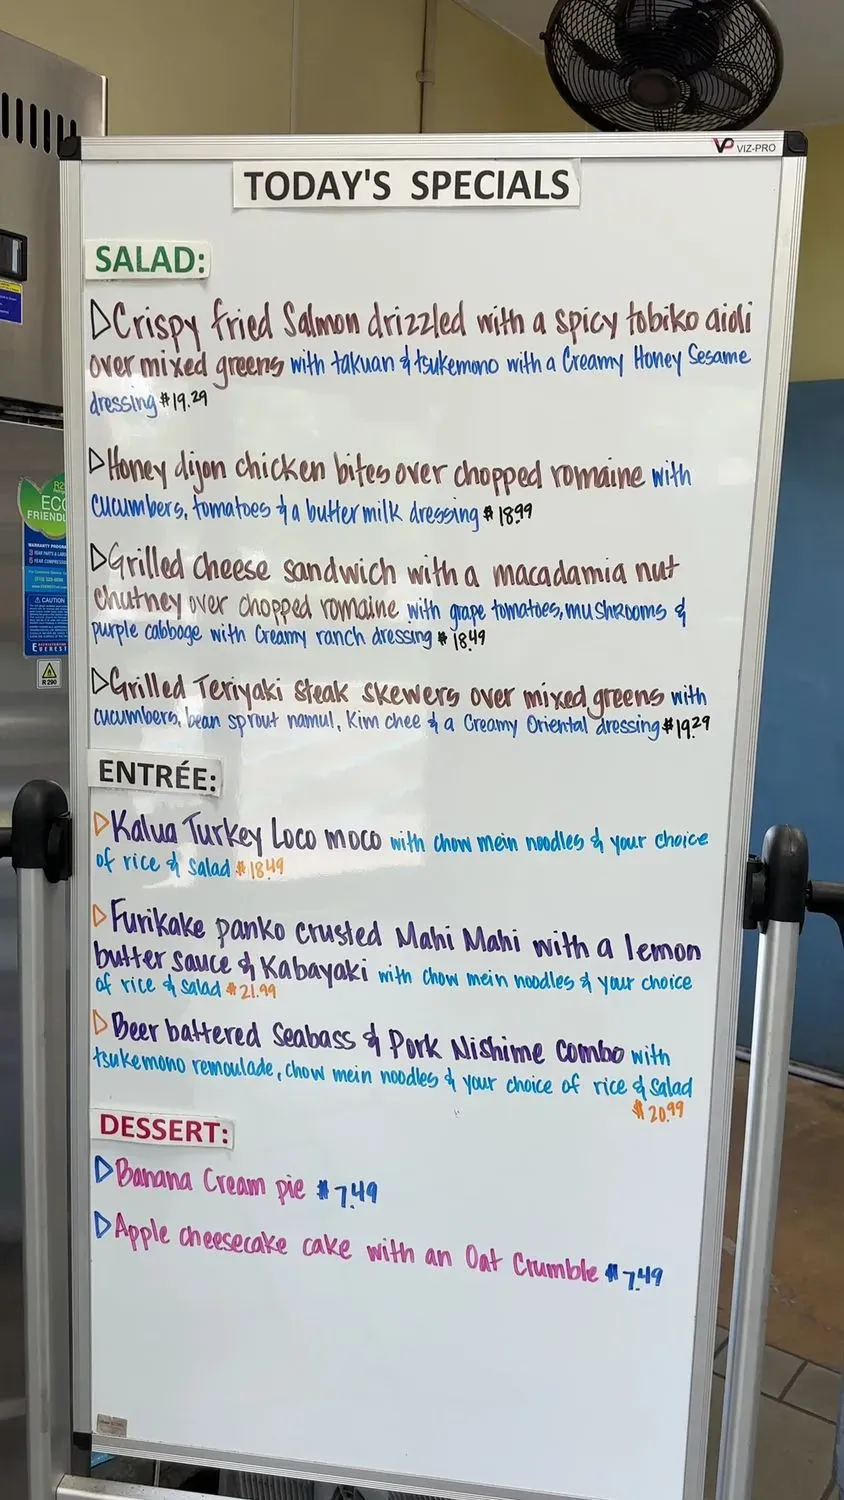 VP VIZ-PRO
TODAY'S SPECIALS
SALAD:
Crispy fried Salmon drizzled with a spicy tobiko aioli
over mixed greens with takuan & tsukemono with a Creamy Honey Sesame
dressing $19.29
Honey dijon chicken bites over chopped romaine with
cucumbers, tomatoes & a butter milk dressing $18.99
Grilled cheese sandwich with a macadamia nut
chutney over chopped romaine with grape tomatoes, mushrooms &
purple cabbage with Creamy ranch dressing $18.49
Grilled Teriyaki steak skewers over mixed greens with
cucumbers, bean sprout namul, Kim chee & a Creamy Oriental dressing $19.29
ENTRÉE:
Kalua Turkey Loco moco with chow mein noodles & your choice
of rice & salad $18.49
Furikake panko crusted Mahi Mahi with a lemon
butter sauce & Kabayaki with chow mein noodles & your choice
of rice & salad $21.99
Beer battered Seabass & Pork Nishime combo with
tsukemono remoulade, chow mein noodles & your choice of rice & salad
$20.99
DESSERT:
Banana Cream pie $7.49
Apple cheesecake cake with an Oat Crumble $7.49
ECO
FRIENDL
CAUTION
R290